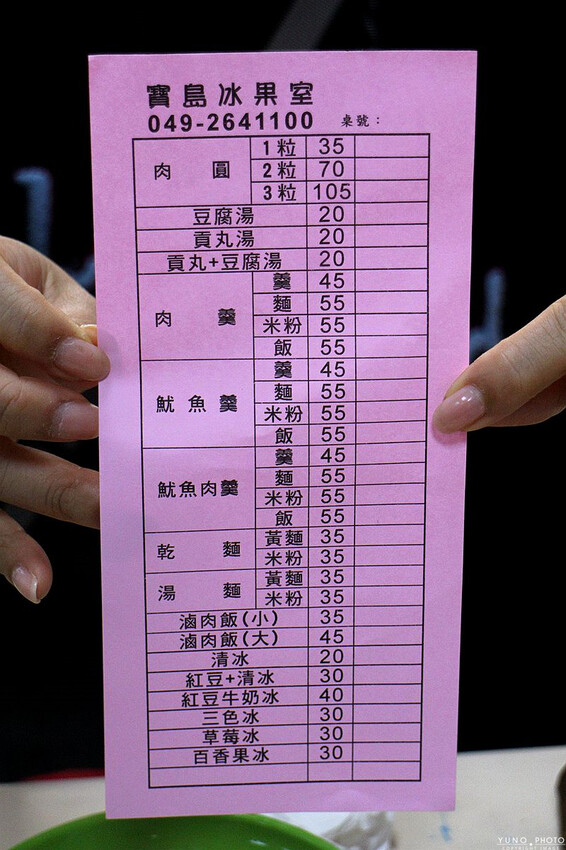 寶島冰果室
049-2641100 桌號：
肉圓 1粒 35
2粒 70
3粒 105
豆腐湯 20
貢丸湯 20
貢丸+豆腐湯 20
肉羹 羹 45
麵 55
米粉 55
飯 55
魷魚羹 羹 45
麵 55
米粉 55
飯 55
魷魚肉羹 羹 45
麵 55
米粉 55
飯 55
乾麵 黃麵 35
米粉 35
湯麵 黃麵 35
米粉 35
滷肉飯(小) 35
滷肉飯(大) 45
清冰 20
紅豆+清冰 30
紅豆牛奶冰 40
三色冰 30
草莓冰 30
百香果冰 30
YUNO PHOTO
COPYRIGHT IMAGE